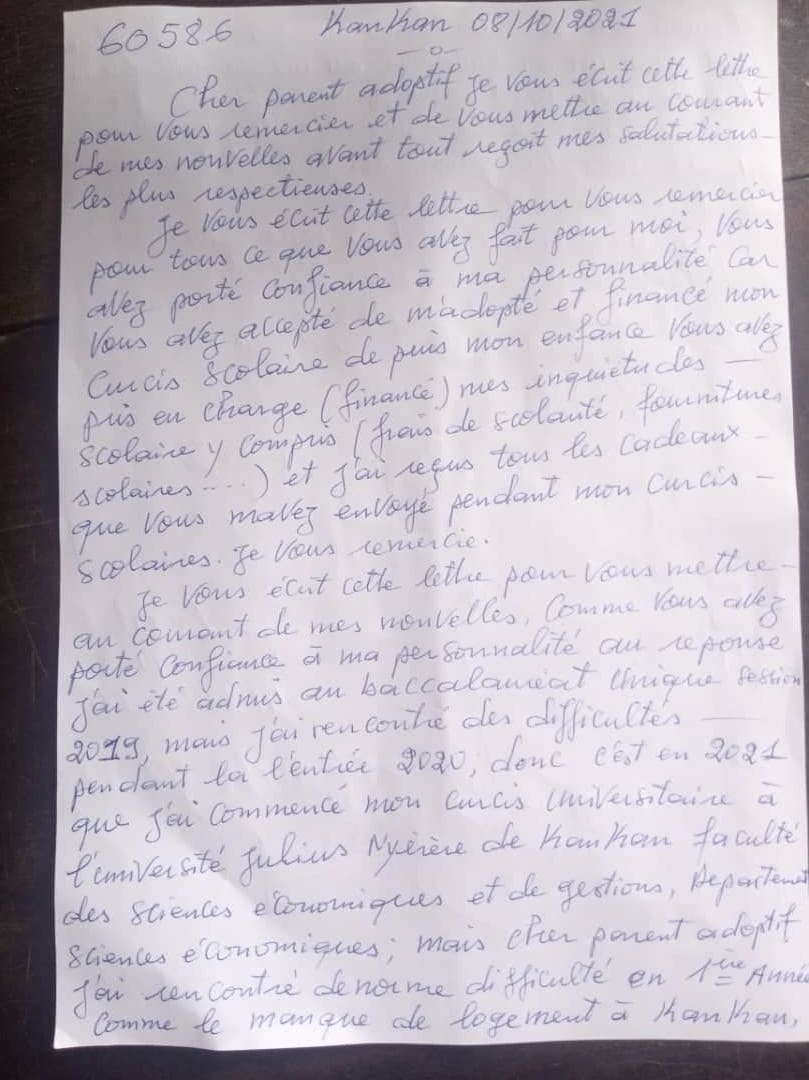 60586 KanKan 08/10/2021
—o—
Cher parent adoptif je vous écrit cette lettre
pour vous remercier et de vous mettre au courant
de mes nouvelles avant tout reçoit mes salutations-
les plus respectieuses.
Je vous écrit cette lettre pour vous remercier
pour tous ce que vous avez fait pour moi, vous
avez porté confiance à ma personnalité car
vous avez accepté de m'adopté et financé mon
curcis scolaire de puis mon enfance vous avez
pris en charge (financé) mes inquietudes —
scolaire y compris (frais de scolarité, fournitures
scolaires ....) et j'ai reçus tous les cadeaux -
que vous mavez envoyé pendant mon curcis -
scolaires. Je vous remercie.
Je vous écrit cette lettre pour vous mettre -
au courant de mes nouvelles. Comme vous avez
porté confiance à ma personnalité au reponse
j'ai été admis au baccalauréat unique session
2019, mais j'ai rencontré des difficultés —
pendant la l'entrée 2020, donc c'est en 2021
que j'ai commencé mon curcis universitaire à
l'université Julius Nyérère de KanKan faculté
des sciences économiques et de gestions, Departement
sciences économiques; mais cher parent adoptif
j'ai rencontré denorme difficulté en 1ère Année
comme le manque de logement à KanKan,